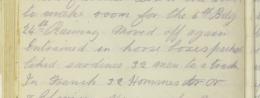 to make room for the 6th Bdg
24th Raining. Moved off again
Entrained in horse boxes packed
liked sardines 32 men to a truck
In French 32 Hommes Or